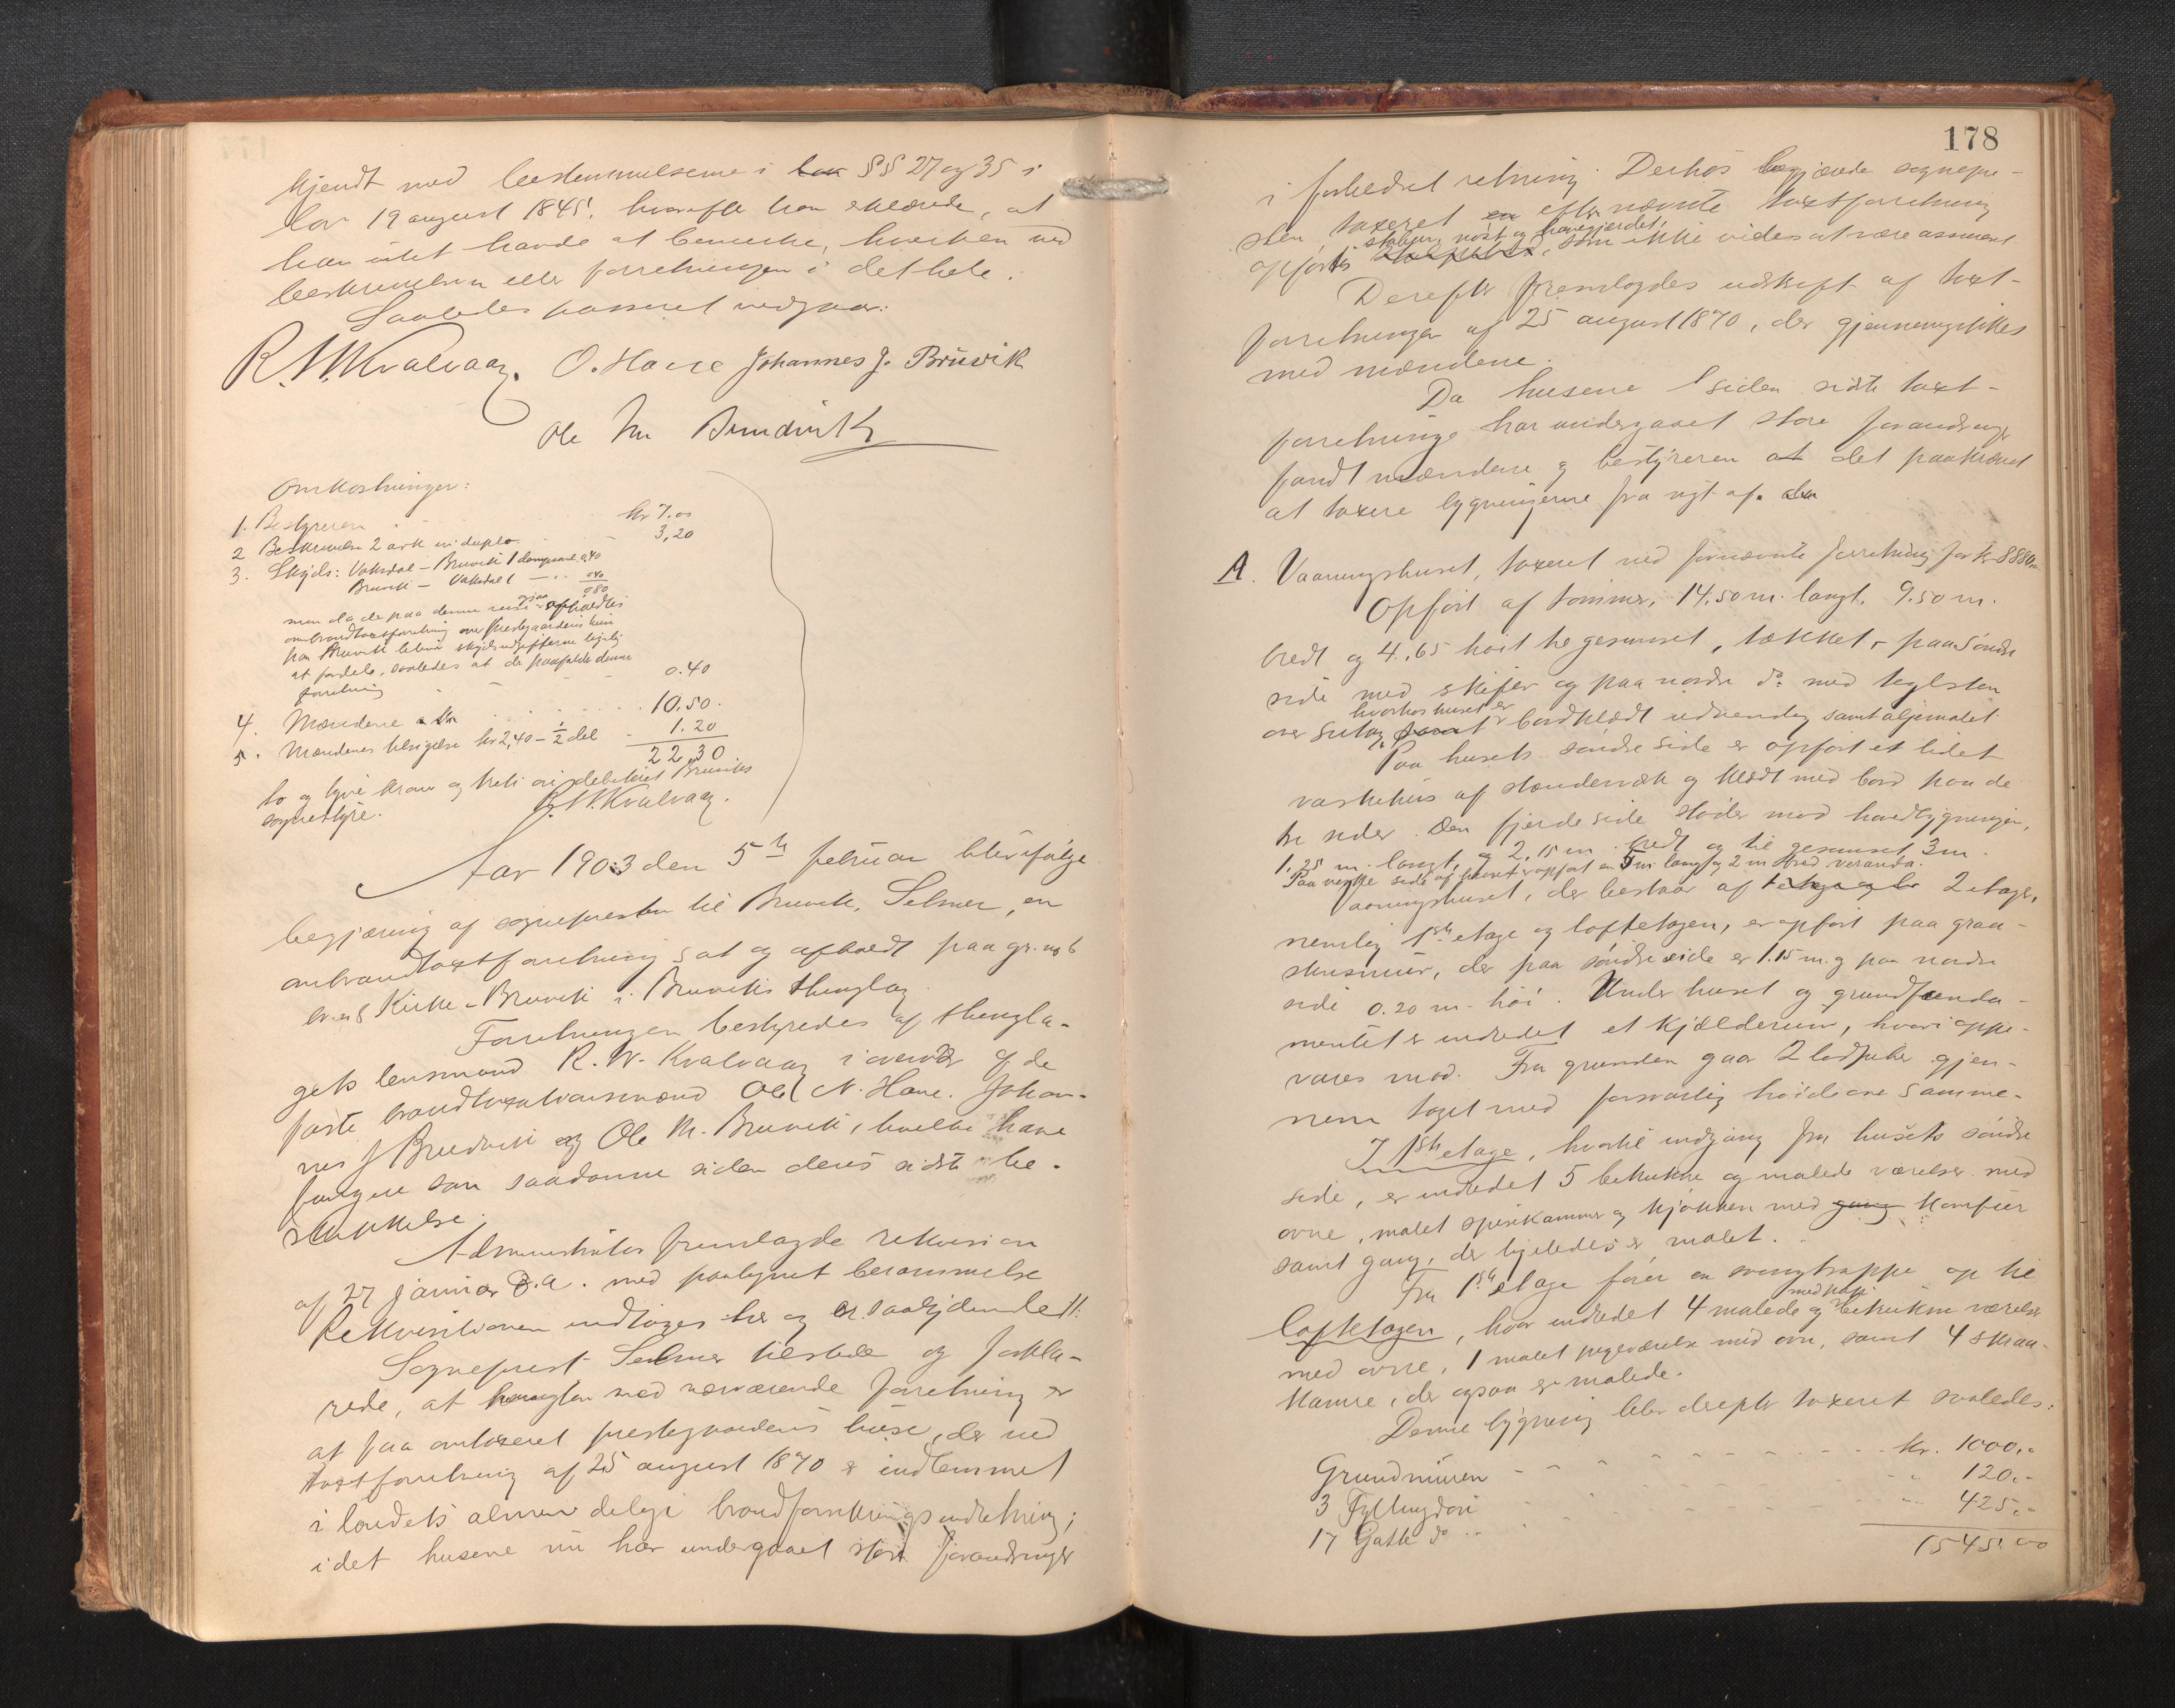 kjendt med bestemmelserne i lov §§ 27 og 35 i
lov 19 august 1845. hvorefter han erklærede, at
han intet havde at bemerke, hverken ved
beskrivelsen eller forretningen i det hele.
Saaledes passeret vedgaar:
R. W. Kvalvaag. O. Have Johannes J. Bruvik
Ole M. Bruvik
Omkostninger:
1. Bestyreren kr 7.00
2 Beskrivelse 2 ark in duplo 3,20
3. Skyds: Vaksdal – Bruvik 1 0.40
Bruvik – Vaksdal 0.40
0.80
men da de paa denne reise ogsaa afholdtes
ombrandtaxtforretning over Prestegaardens huse
paa Bruvik bliver skydsudgifterne ligelig
at fordele, saaledes at der paafalder denne
forretning 0.40
4. Mændene 10.50.
5. Mændenes tilsigelse kr 2,40 – ½ del 1.20
22.30
to og tyve kroner og treti øre debiteret Bruviks
sognestyre. R. W. Kvalvaag.
Aar 1903 den 5te februar blev ifølge
begjæring af sognepresten til Bruvik, Selmer, en
ombrandtaxtforretning sat og afholdt paa gr. no 6
br. no 8 Kirke-Bruvik i Bruviks thinglag.
Forretningen bestyredes af thingla-
gets lensmand R. W. Kvalvaag i overvær af de
faste brandtaxationsmænd Ole N. Have. Johan-
nes J Bruvik og Ole M. Bruvik, hvilke have
fungeret som saadanne siden deres sidste be-
skikkelse.
Administrator fremlagde rekvisition
af 27 januar d.a. med paategnet berammelse
Rekvisitionen indtages her og er saalydende ::
Sogneprest Selmer tilstede og forkla-
rede, at hensigten med nærværende forretning er
at faa omtaxeret prestegaardens huse, der ved
taxtforretning af 25 august 1870 er indlemmet
i landets almindelige brandforsikringsindretning;
idet husene nu har undergaaet store forandringer
178
i forbedret retning. Derhos begjærede sognepre-
sten taxeret en efter nævnte taxtforretning
stolpebod, nøst og havegjærdet,
opført stolpebod, som ikke vides at være assureret
Derefter fremlagdes udskrift af taxt-
forretningen af 25 august 1870, der gjennemgikkes
med mændene.
Da husene siden sidste taxt-
forretning har undergaaet store forandringer
fandt mændene og bestyreren at det paakrævet
at taxere bygningerne fra nyt af.
A. Vaaningshuset, taxeret ved fornævnte forretning for kr 8880,00
Opført af tømmer, 14.50 m. langt, 9.50 m.
bredt og 4.65 høit til gesimset, tækket paa søndre
side med skifer og paa nordre do med teglsten
hvorhos huset er
over sutag, samt bordklædt udvendig samt oljemalet
Paa husets søndre side er opført et lidet
vaskehus af stænderværk og klædt med bord paa de
tre sider. Den fjerde side støder mod hovedbygningen,
1.25 m. langt, og 2,15 m. bredt og til gesimset 3 m.
Paa vestre side af huset er opført en 5 m. lang og 2 m bred veranda.
Vaaningshuset, der bestaar af 2 etager,
nemlig 1ste etage og loftetagen, er opført paa graa-
stensmur, der paa søndre side er 1.15 m. og paa nordre
side 0.20 m. høi. Under huset og grundfunda-
mentet er indredet et kjælderrum, hvori oppe-
vares mad. Fra grunden gaar 2 ledpiber gjen-
nem taget med forsvarlig høide over samme.
I 1ste etage, hvortil indgang fra husets søndre
side, er indredet 5 betrukne og malede værelser med
ovne, malet spisekammer og kjøkken med gang komfur
samt gang, der ligeledes er malet.
Fra 1ste etage fører en svingtrappe op til
loftetagen, hvor indredet 4 malede og betrukne værelser
med ovne, 1 malet pigeværelse med ovn, samt 4 skraa-
kamre, der ogsaa er malede.
Denne bygning blev derefter taxeret saaledes:
Grundmuren kr. 1000,-
3 Fyllingdøre 120,-
17 Gatte do 425,-
1545,00